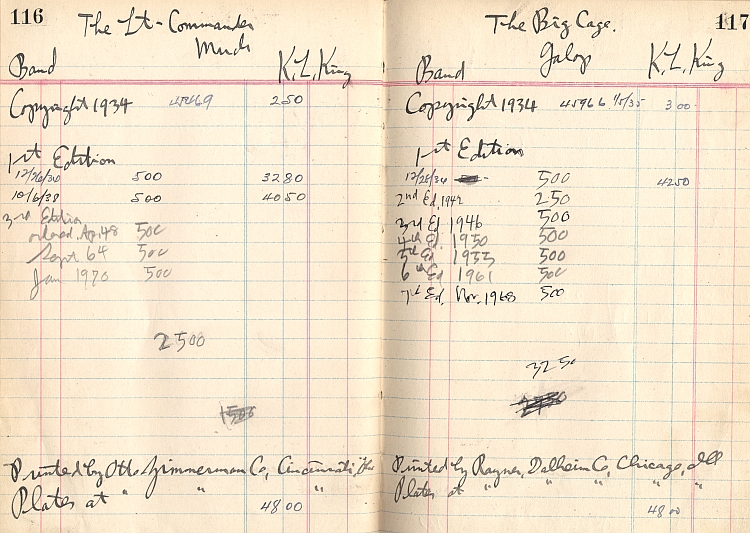 116
The Lt-Commander
March
Band K. L. King
Copyright 1934 250
1st Edition
12/26/34 500 3280
10/6/38 500 4050
3rd Edition
ordered Ap. 48 500
Sept 64 500
Jan 1970 500
2500
1500
Printed by Otto Zimmerman Co, Cincinnati, Ohio
Plates at " " "
4800
117
The Big Cage.
Galop
Band K. L. King
Copyright 1934 45966 1/5/35 300
1st Edition
12/28/34 500 4250
2nd Ed. 1942 250
3rd Ed 1946 500
4th Ed 1950 500
5th Ed 1955 500
6th Ed 1961 500
7th Ed. Nov. 1968 500
3250
Printed by Rayner, Dalheim Co, Chicago, Ill
Plates at " " " "
4800